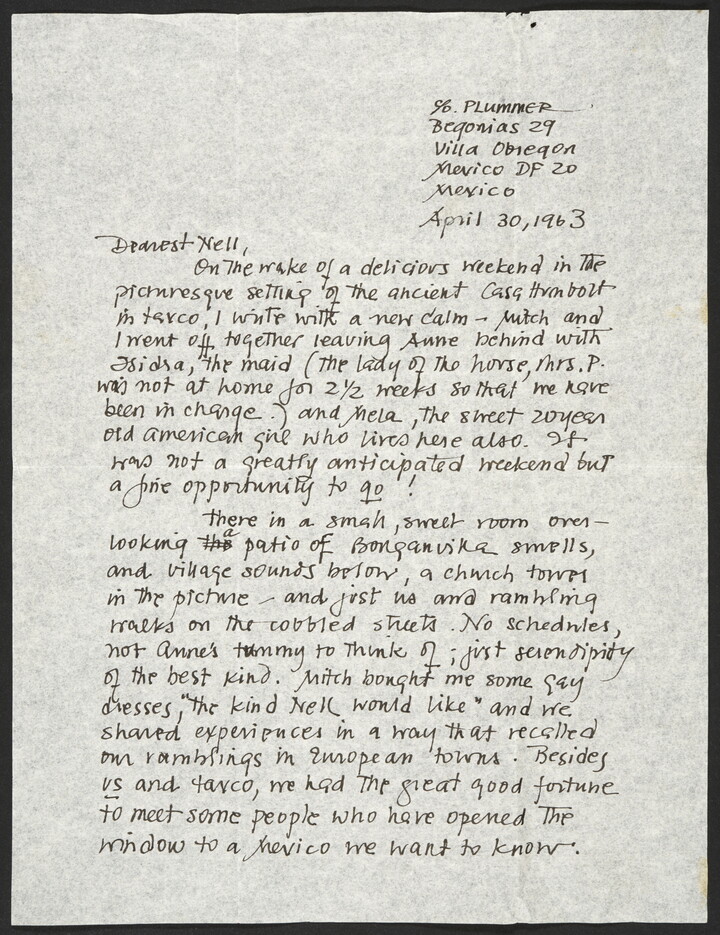 c/o. PLUMMER
Begonias 29
Villa Obregon
Mexico DF 20
Mexico
April 30, 1963
Dearest Nell,
On the wake of a delicious weekend in the
picturesque setting of the ancient Casa Humbolt
in taxco, I write with a new calm - Mitch and
I went off together leaving Anne behind with
Isidra, the maid (the lady of the house, Mrs. P.
was not at home for 2 1/2 weeks so that we have
been in charge.) and Mela, the sweet 20 year
old american girl who lives here also. It
was not a greatly anticipated weekend but
a fine opportunity to go!
There in a small, sweet room over-
looking the a patio of Bouganvilla smells,
and village sounds below, a church tower
in the picture - and just us and rambling
walks on the cobbled streets. No schedules,
not Anne's tummy to think of; just serendipity
of the best kind. Mitch bought me some gay
dresses, "the kind Nell would like" and we
shared experiences in a way that recalled
our ramblings in European towns. Besides
us and taxco, we had the great good fortune
to meet some people who have opened the
window to a Mexico we want to know.